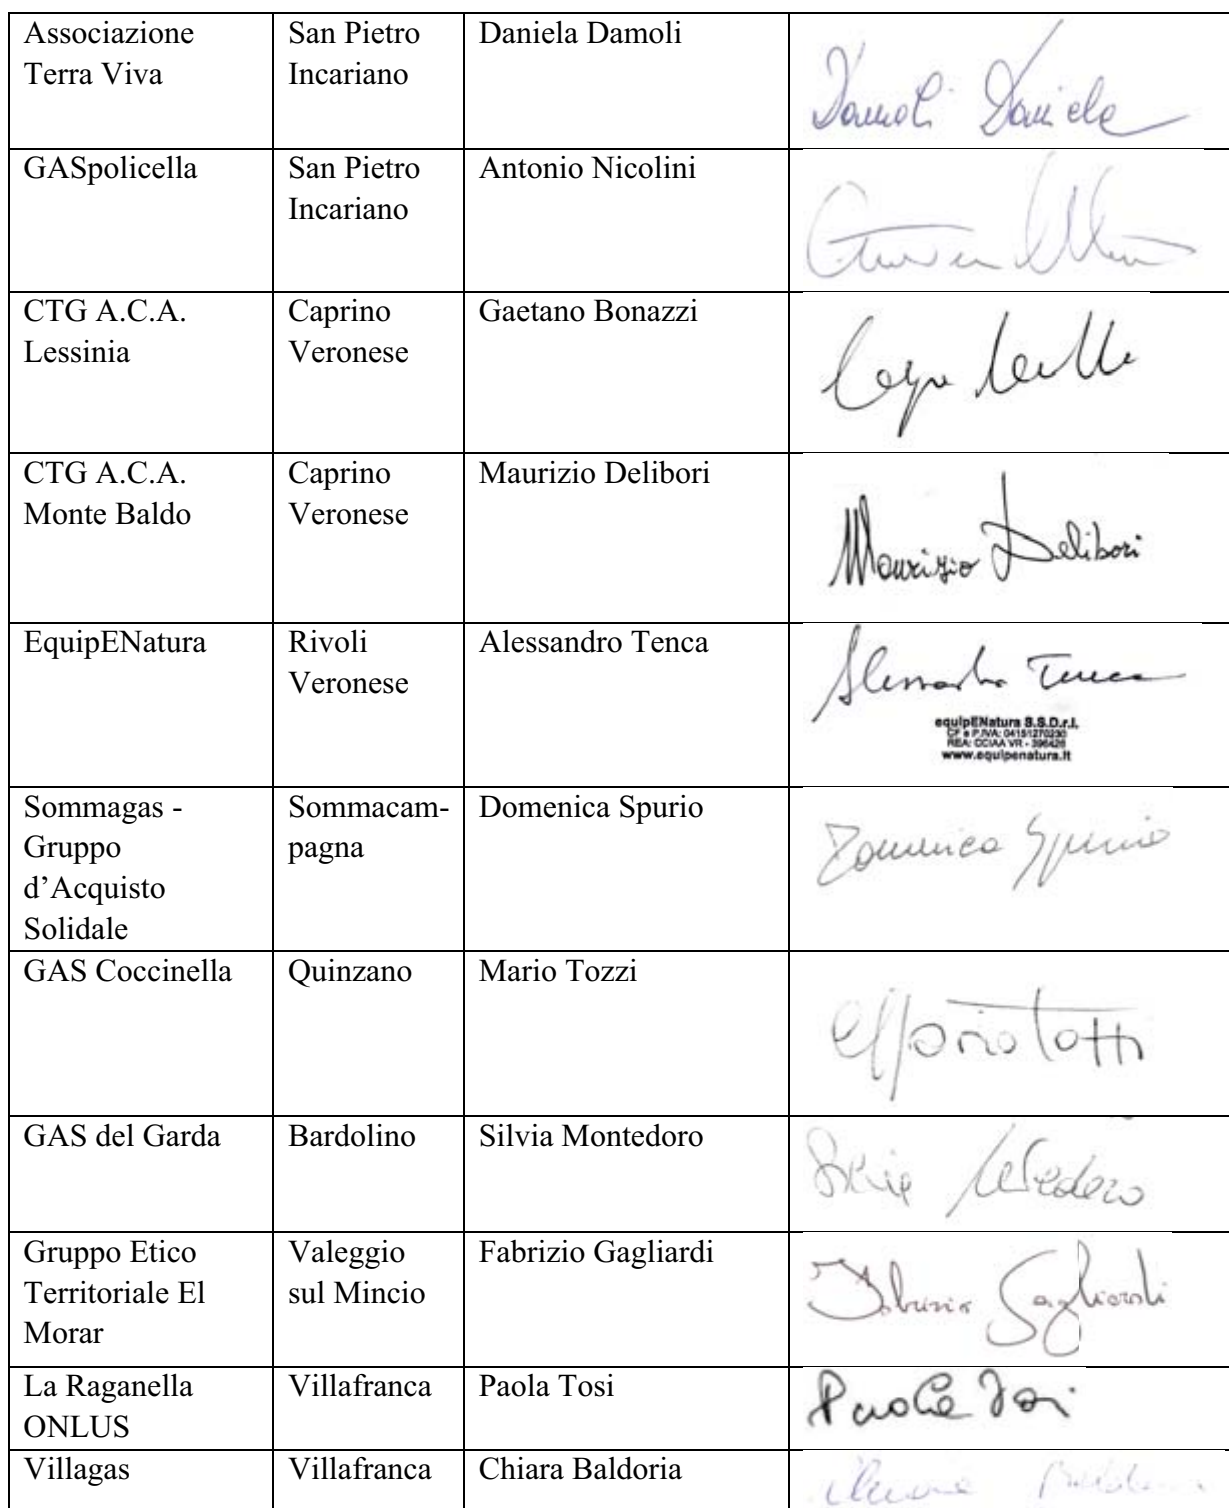 Associazione
Terra Viva
San Pietro
Incariano
Daniela Damoli
Damoli Daniela
GASpolicella
San Pietro
Incariano
Antonio Nicolini
CTG A.C.A.
Lessinia
Caprino
Veronese
Gaetano Bonazzi
CTG A.C.A.
Monte Baldo
Caprino
Veronese
Maurizio Delibori
Maurizio Delibori
EquipENatura
Rivoli
Veronese
Alessandro Tenca
Alessandro Tenca
equipENatura S.S.D.r.l.
CF e P.IVA: 04151270230
REA: CCIAA VR - 396426
www.equipenatura.it
Sommagas -
Gruppo
d’Acquisto
Solidale
Sommacam-
pagna
Domenica Spurio
Domenica Spurio
GAS Coccinella
Quinzano
Mario Tozzi
Mario Tozzi
GAS del Garda
Bardolino
Silvia Montedoro
Silvia Montedoro
Gruppo Etico
Territoriale El
Morar
Valeggio
sul Mincio
Fabrizio Gagliardi
Fabrizio Gagliardi
La Raganella
ONLUS
Villafranca
Paola Tosi
Paola Tosi
Villagas
Villafranca
Chiara Baldoria